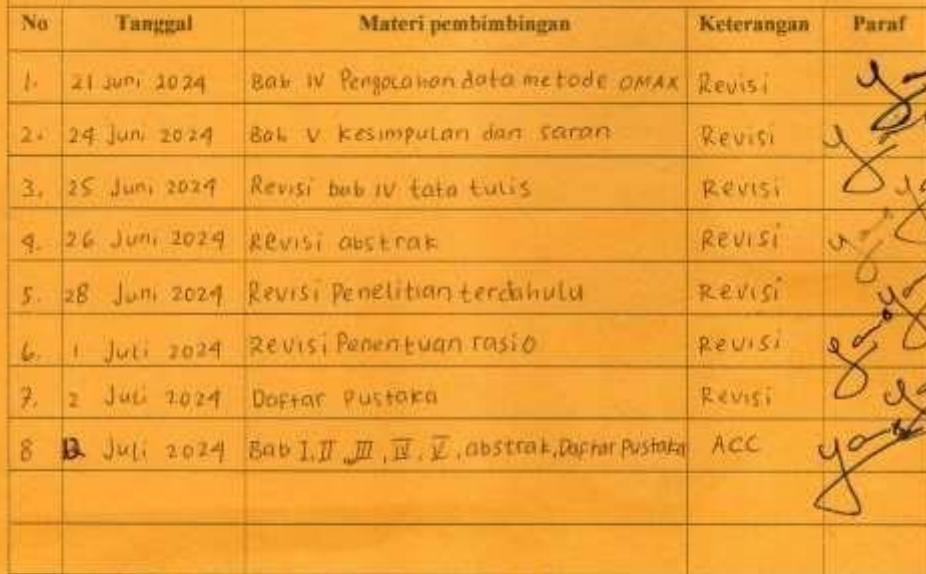 No Tanggal Materi pembimbingan Keterangan Paraf
1. 21 Juni 2024 Bab IV Pengolahan data metode OMAX Revisi
2. 24 Juni 2024 Bab V kesimpulan dan saran Revisi
3. 25 Juni 2024 Revisi bab IV tata tulis Revisi
4. 26 Juni 2024 Revisi abstrak Revisi
5. 28 Juni 2024 Revisi Penelitian terdahulu Revisi
6. 1 Juli 2024 Revisi Penentuan rasio Revisi
7. 2 Juli 2024 Daftar Pustaka Revisi
8 Juli 2024 Bab I, II, III, IV, V, abstrak, Daftar Pustaka ACC